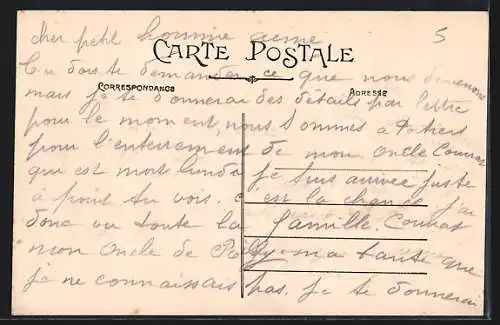 cher petit homme aimé
5
CARTE POSTALE
Tu dois te demander ce que nous devenons
CORRESPONDANCE
ADRESSE
mais je te donnerai des détails par lettre
pour le moment, nous sommes à Poitiers
pour l'enterrement de mon oncle
qui est mort lundi je suis arrivée juste
à point tu vois. c'est la chance j'ai
donc vu toute la famille.
mon oncle de ma tante que
je ne connaissais pas. je te donnerai